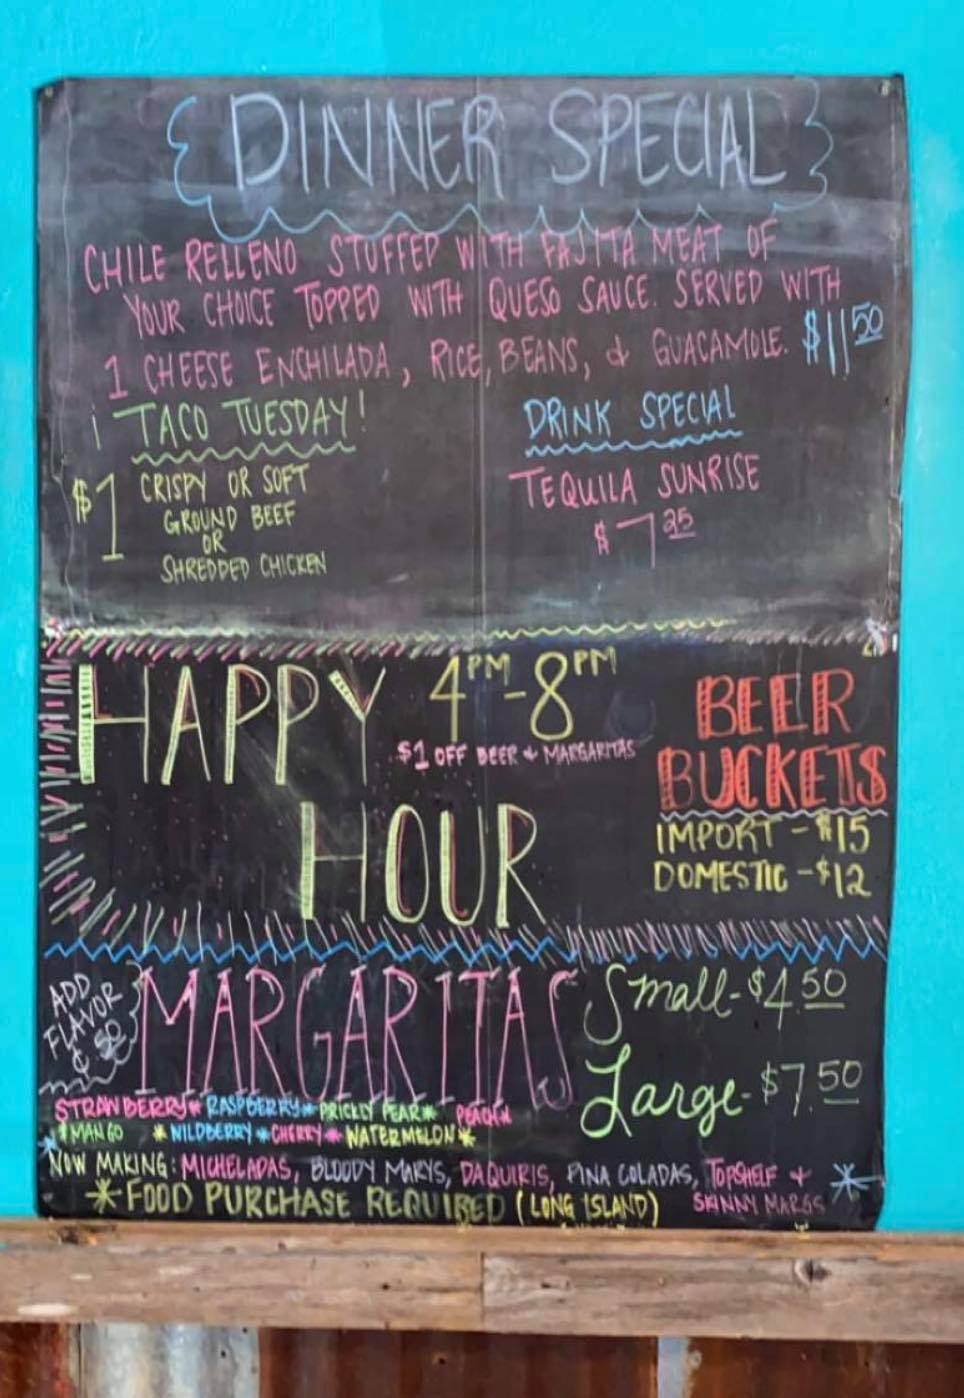 DINNER SPECIAL
CHILE RELLENO STUFFED WITH FAJITA MEAT OF
YOUR CHOICE TOPPED WITH QUESO SAUCE. SERVED WITH
1 CHEESE ENCHILADA, RICE, BEANS, & GUACAMOLE. $11 50
¡TACO TUESDAY!
$1 CRISPY OR SOFT
GROUND BEEF
OR
SHREDDED CHICKEN
DRINK SPECIAL
TEQUILA SUNRISE
$7 25
HAPPY
HOUR
4PM-8PM
$1 OFF BEER & MARGARITAS
BEER
BUCKETS
IMPORT - $15
DOMESTIC - $12
ADD
FLAVOR
¢ 50
MARGARITAS
Small - $4.50
Large - $7.50
STRAWBERRY * RASPBERRY * PRICKLY PEAR * PEACH *
* MANGO * WILDBERRY * CHERRY * WATERMELON *
NOW MAKING: MICHELADAS, BLOODY MARYS, DAQUIRIS, PINA COLADAS, TOPSHELF &
SKINNY MARGS
* FOOD PURCHASE REQUIRED (LONG ISLAND)